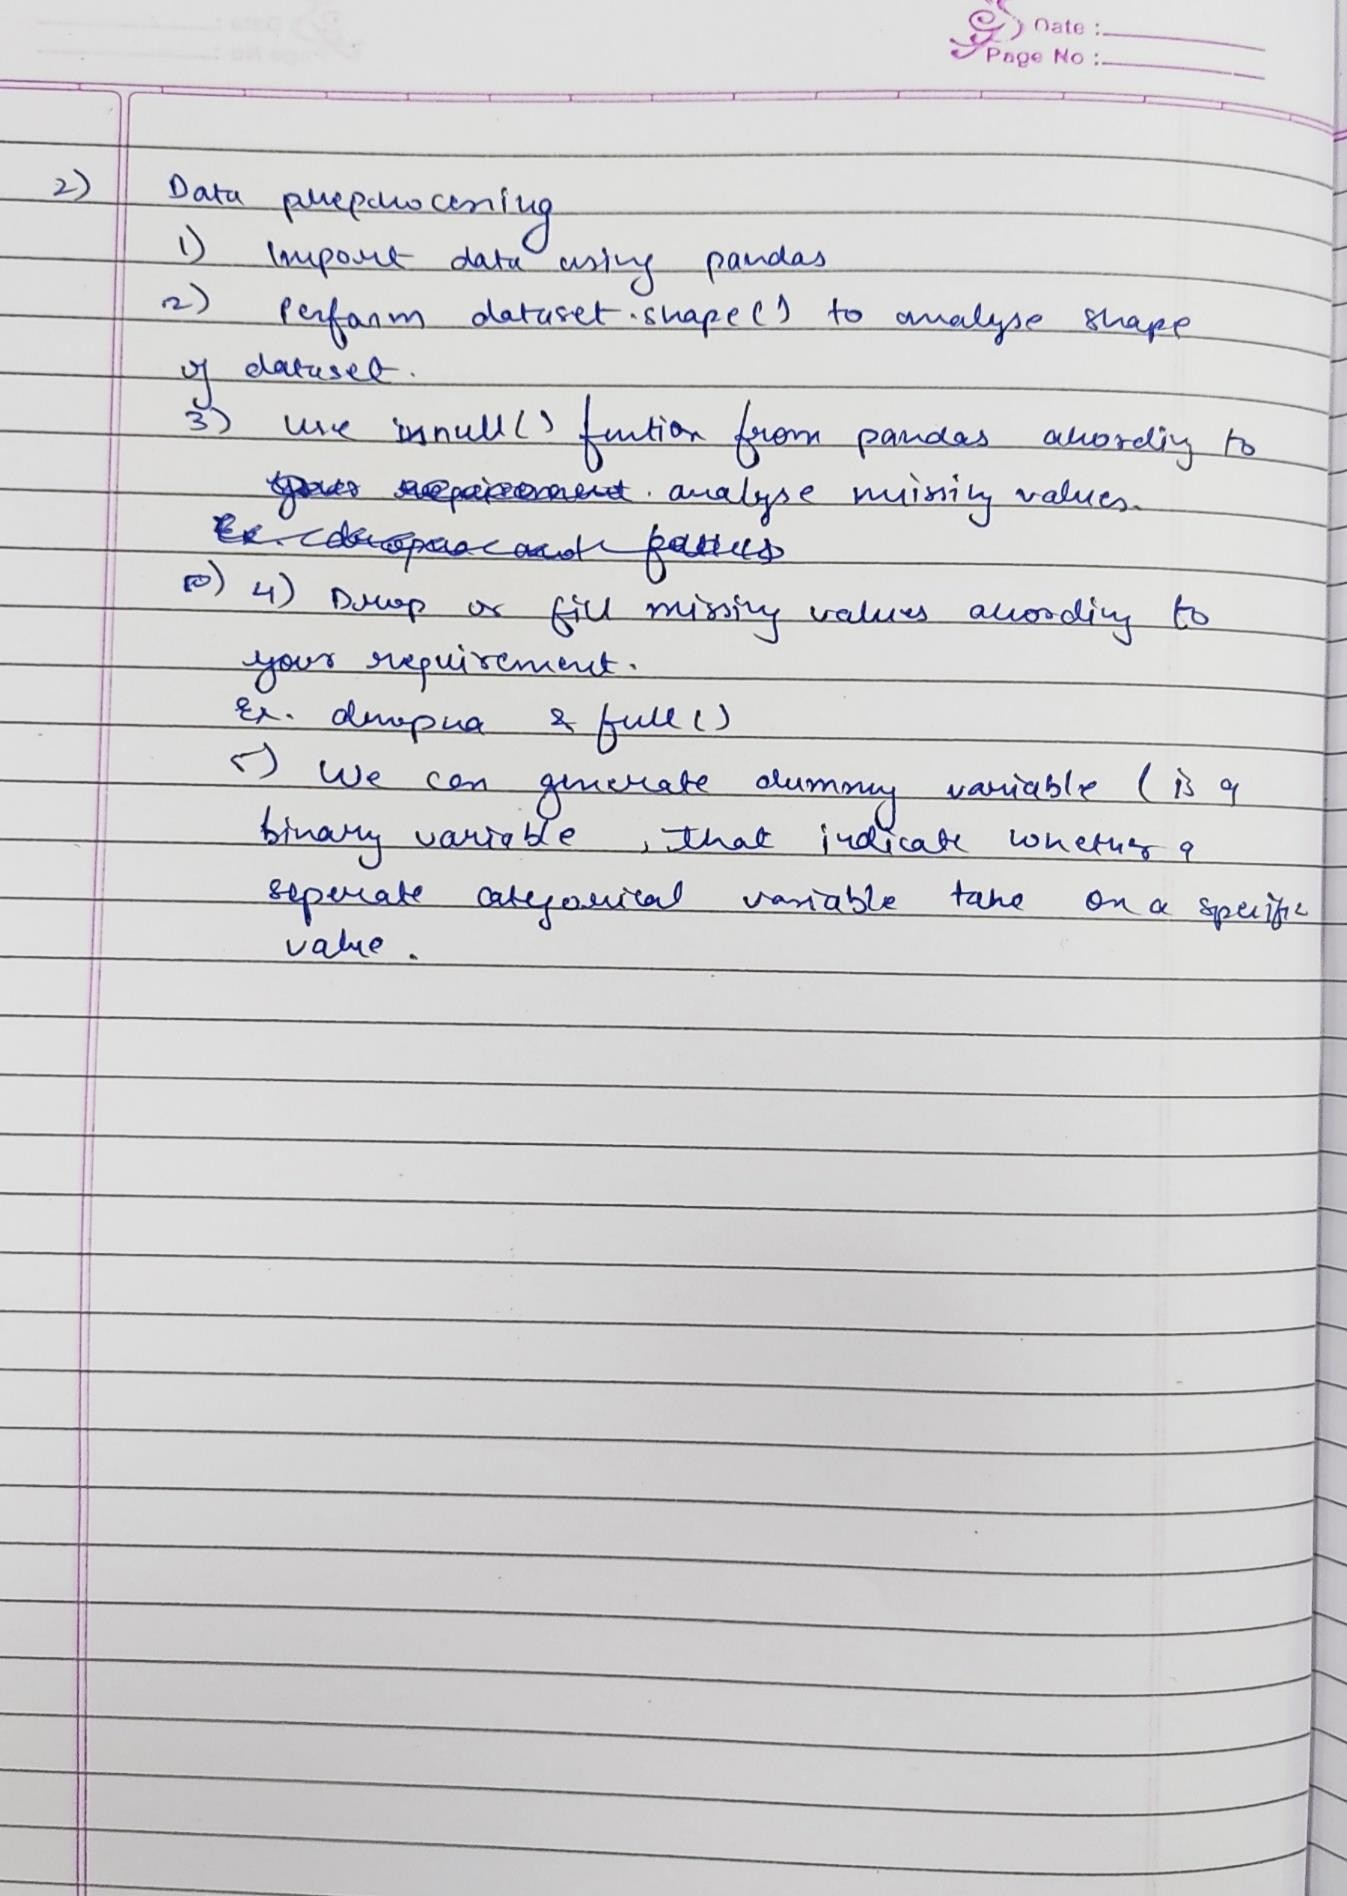 Date :
Page No :
2) Data preprocessing
1) Import data using pandas
2) Perform dataset.shape() to analyse shape
of dataset.
3) Use isnull() funtion from pandas according to
your requirement. analyse missing values.
Ex.
5) 4) Drop or fill missing values according to
your requirement.
Ex. dropna & full()
5) We can generate dummy variable ( is a
binary variable , that indicate whether a
seperate categorical variable take on a specific
value .